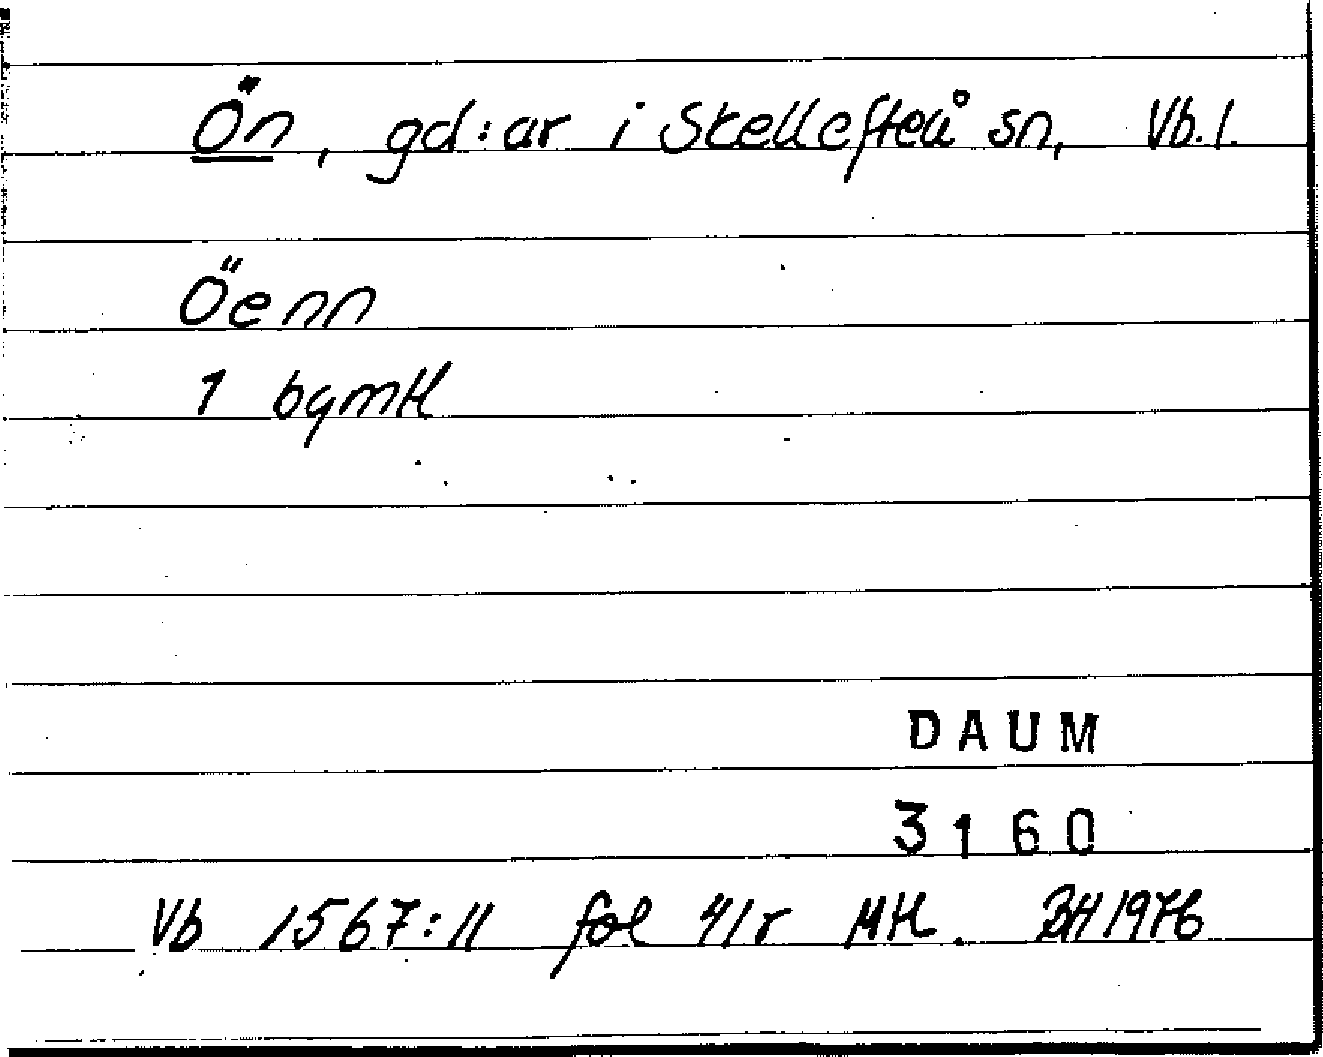 Ön, gd:ar i Skellefteå sn, Vb. l.
Öenn
1 bqmtl
DAUM
3160
Vb 1567:11 fol 41r ML. BH 1976